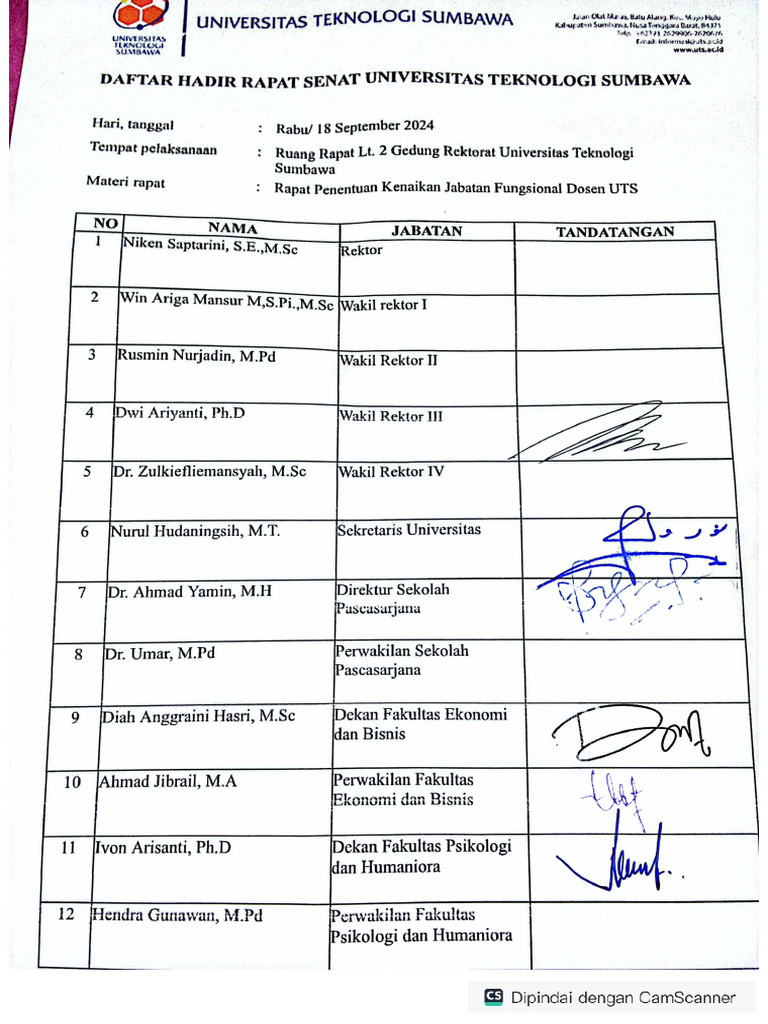 UNIVERSITAS
TEKNOLOGI
SUMBAWA
UNIVERSITAS TEKNOLOGI SUMBAWA
Jalan Olat Maras, Batu Alang, Kec. Moyo Hulu
Kabupaten Sumbawa, Nusa Tenggara Barat, 84371
www.uts.ac.id
DAFTAR HADIR RAPAT SENAT UNIVERSITAS TEKNOLOGI SUMBAWA
Hari, tanggal : Rabu/ 18 September 2024
Tempat pelaksanaan : Ruang Rapat Lt. 2 Gedung Rektorat Universitas Teknologi
Sumbawa
Materi rapat : Rapat Penentuan Kenaikan Jabatan Fungsional Dosen UTS
NO NAMA JABATAN TANDATANGAN
1 Niken Saptarini, S.E.,M.Sc Rektor
2 Win Ariga Mansur M,S.Pi.,M.Sc Wakil rektor I
3 Rusmin Nurjadin, M.Pd Wakil Rektor II
4 Dwi Ariyanti, Ph.D Wakil Rektor III
5 Dr. Zulkiefliemansyah, M.Sc Wakil Rektor IV
6 Nurul Hudaningsih, M.T. Sekretaris Universitas
7 Dr. Ahmad Yamin, M.H Direktur Sekolah
Pascasarjana
8 Dr. Umar, M.Pd Perwakilan Sekolah
Pascasarjana
9 Diah Anggraini Hasri, M.Sc Dekan Fakultas Ekonomi
dan Bisnis
10 Ahmad Jibrail, M.A Perwakilan Fakultas
Ekonomi dan Bisnis
11 Ivon Arisanti, Ph.D Dekan Fakultas Psikologi
dan Humaniora
12 Hendra Gunawan, M.Pd Perwakilan Fakultas
Psikologi dan Humaniora
CS Dipindai dengan CamScanner